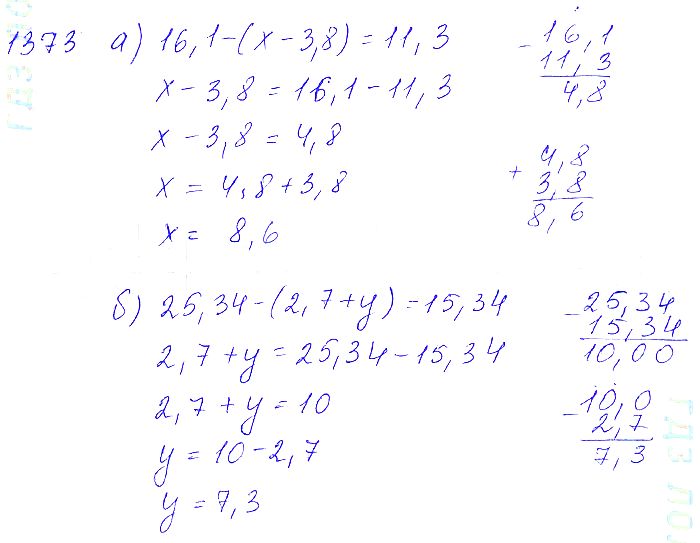 1373 а) 16,1-(x-3,8)=11,3
x-3,8=16,1-11,3
x-3,8=4,8
x=4,8+3,8
x= 8,6
- 16,1
11,3
4,8
+ 4,8
3,8
8,6
б) 25,34-(2,7+y)=15,34
2,7+y=25,34-15,34
2,7+y=10
y=10-2,7
y=7,3
- 25,34
15,34
10,00
- 10,0
2,7
7,3
ГДЗ ПО